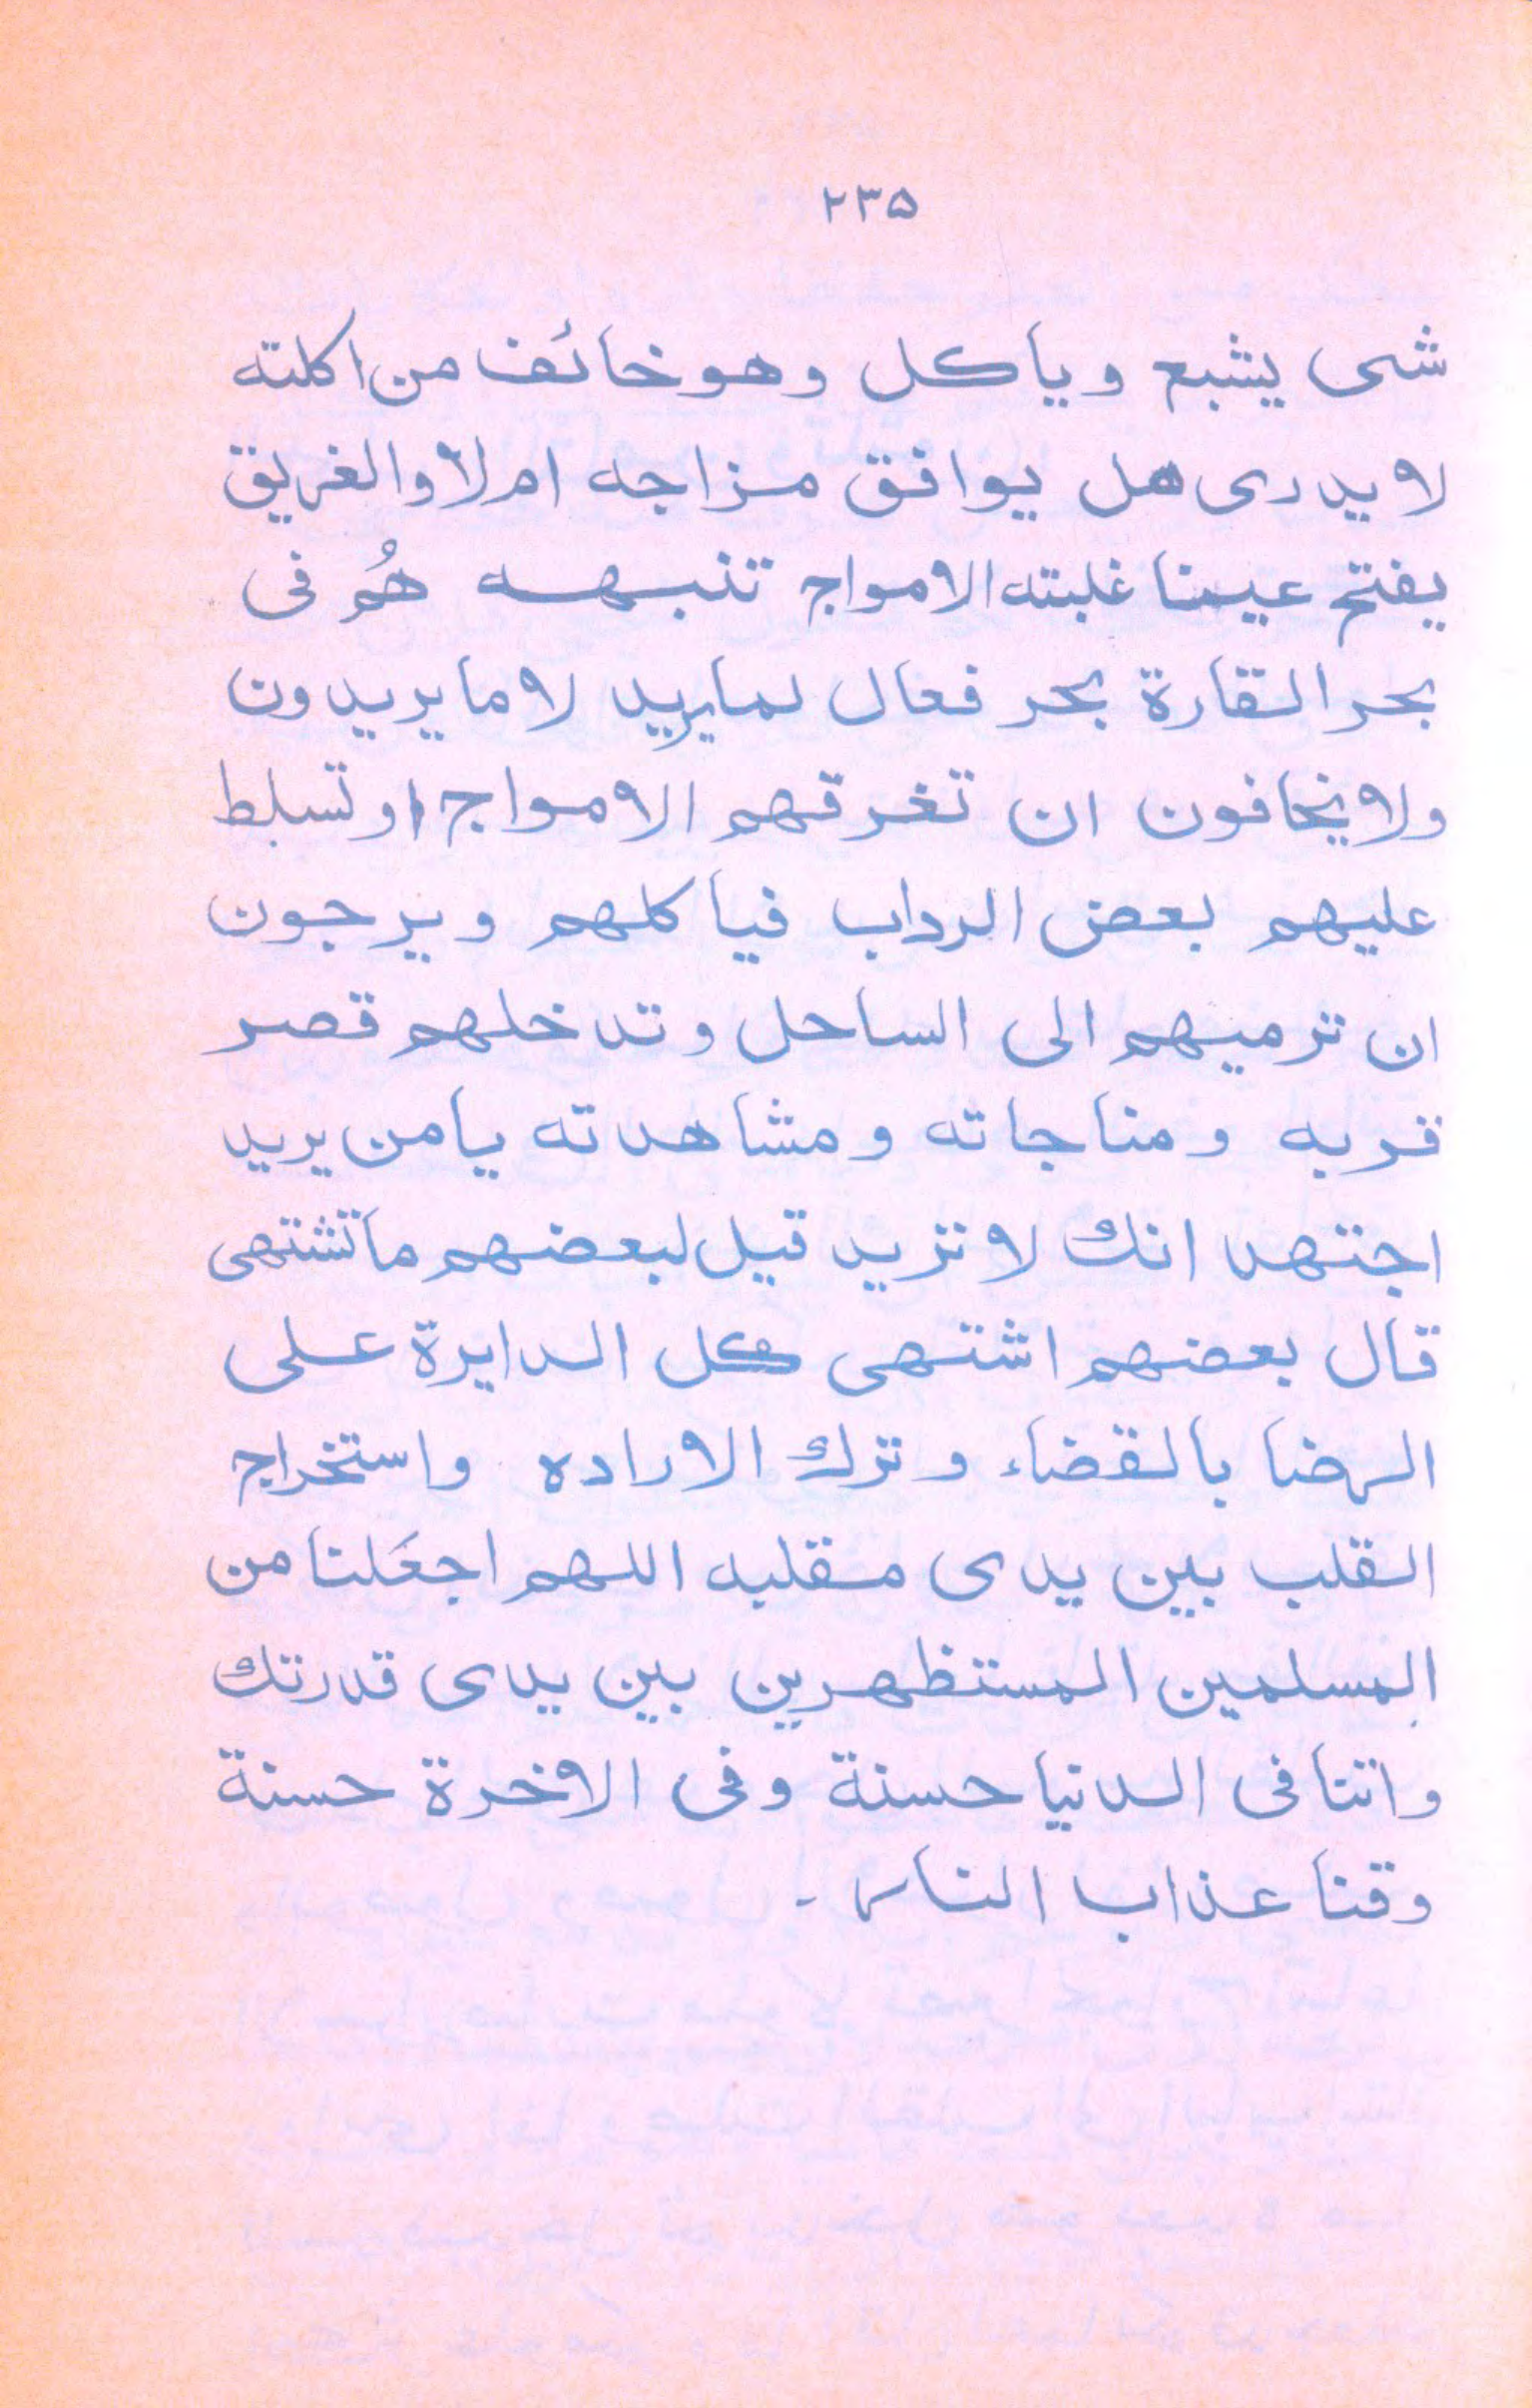 ٢٣۵
شى يشبع وياكل وهو خائف من اكلته
لا يدرى هل يوافق مزاجه ام لا والغريق
يفتح عينا غلبته الامواج تنبهه هُم فى
بحر القارة بحر فعال لما يريد لا ما يريدون
ولا يخافون ان تغرقهم الامواج او تسلط
عليهم بعض الرداب فياكلهم ويرجون
ان ترميهم الى الساحل وتدخلهم قصر
قربه ومناجاته ومشاهدته يا من يريد
اجتهد انك لا تريد قيل لبعضهم ما تشتهى
قال بعضهم اشتهى كل الدايرة على
الرضا بالقضاء وترك الاراده واستخراج
القلب بين يدى مقلبه اللهم اجعَلنا من
المسلمين المستظهرين بين يدى قدرتك
واتنا فى الدنيا حسنة وفى الاخرة حسنة
وقنا عذاب النار -